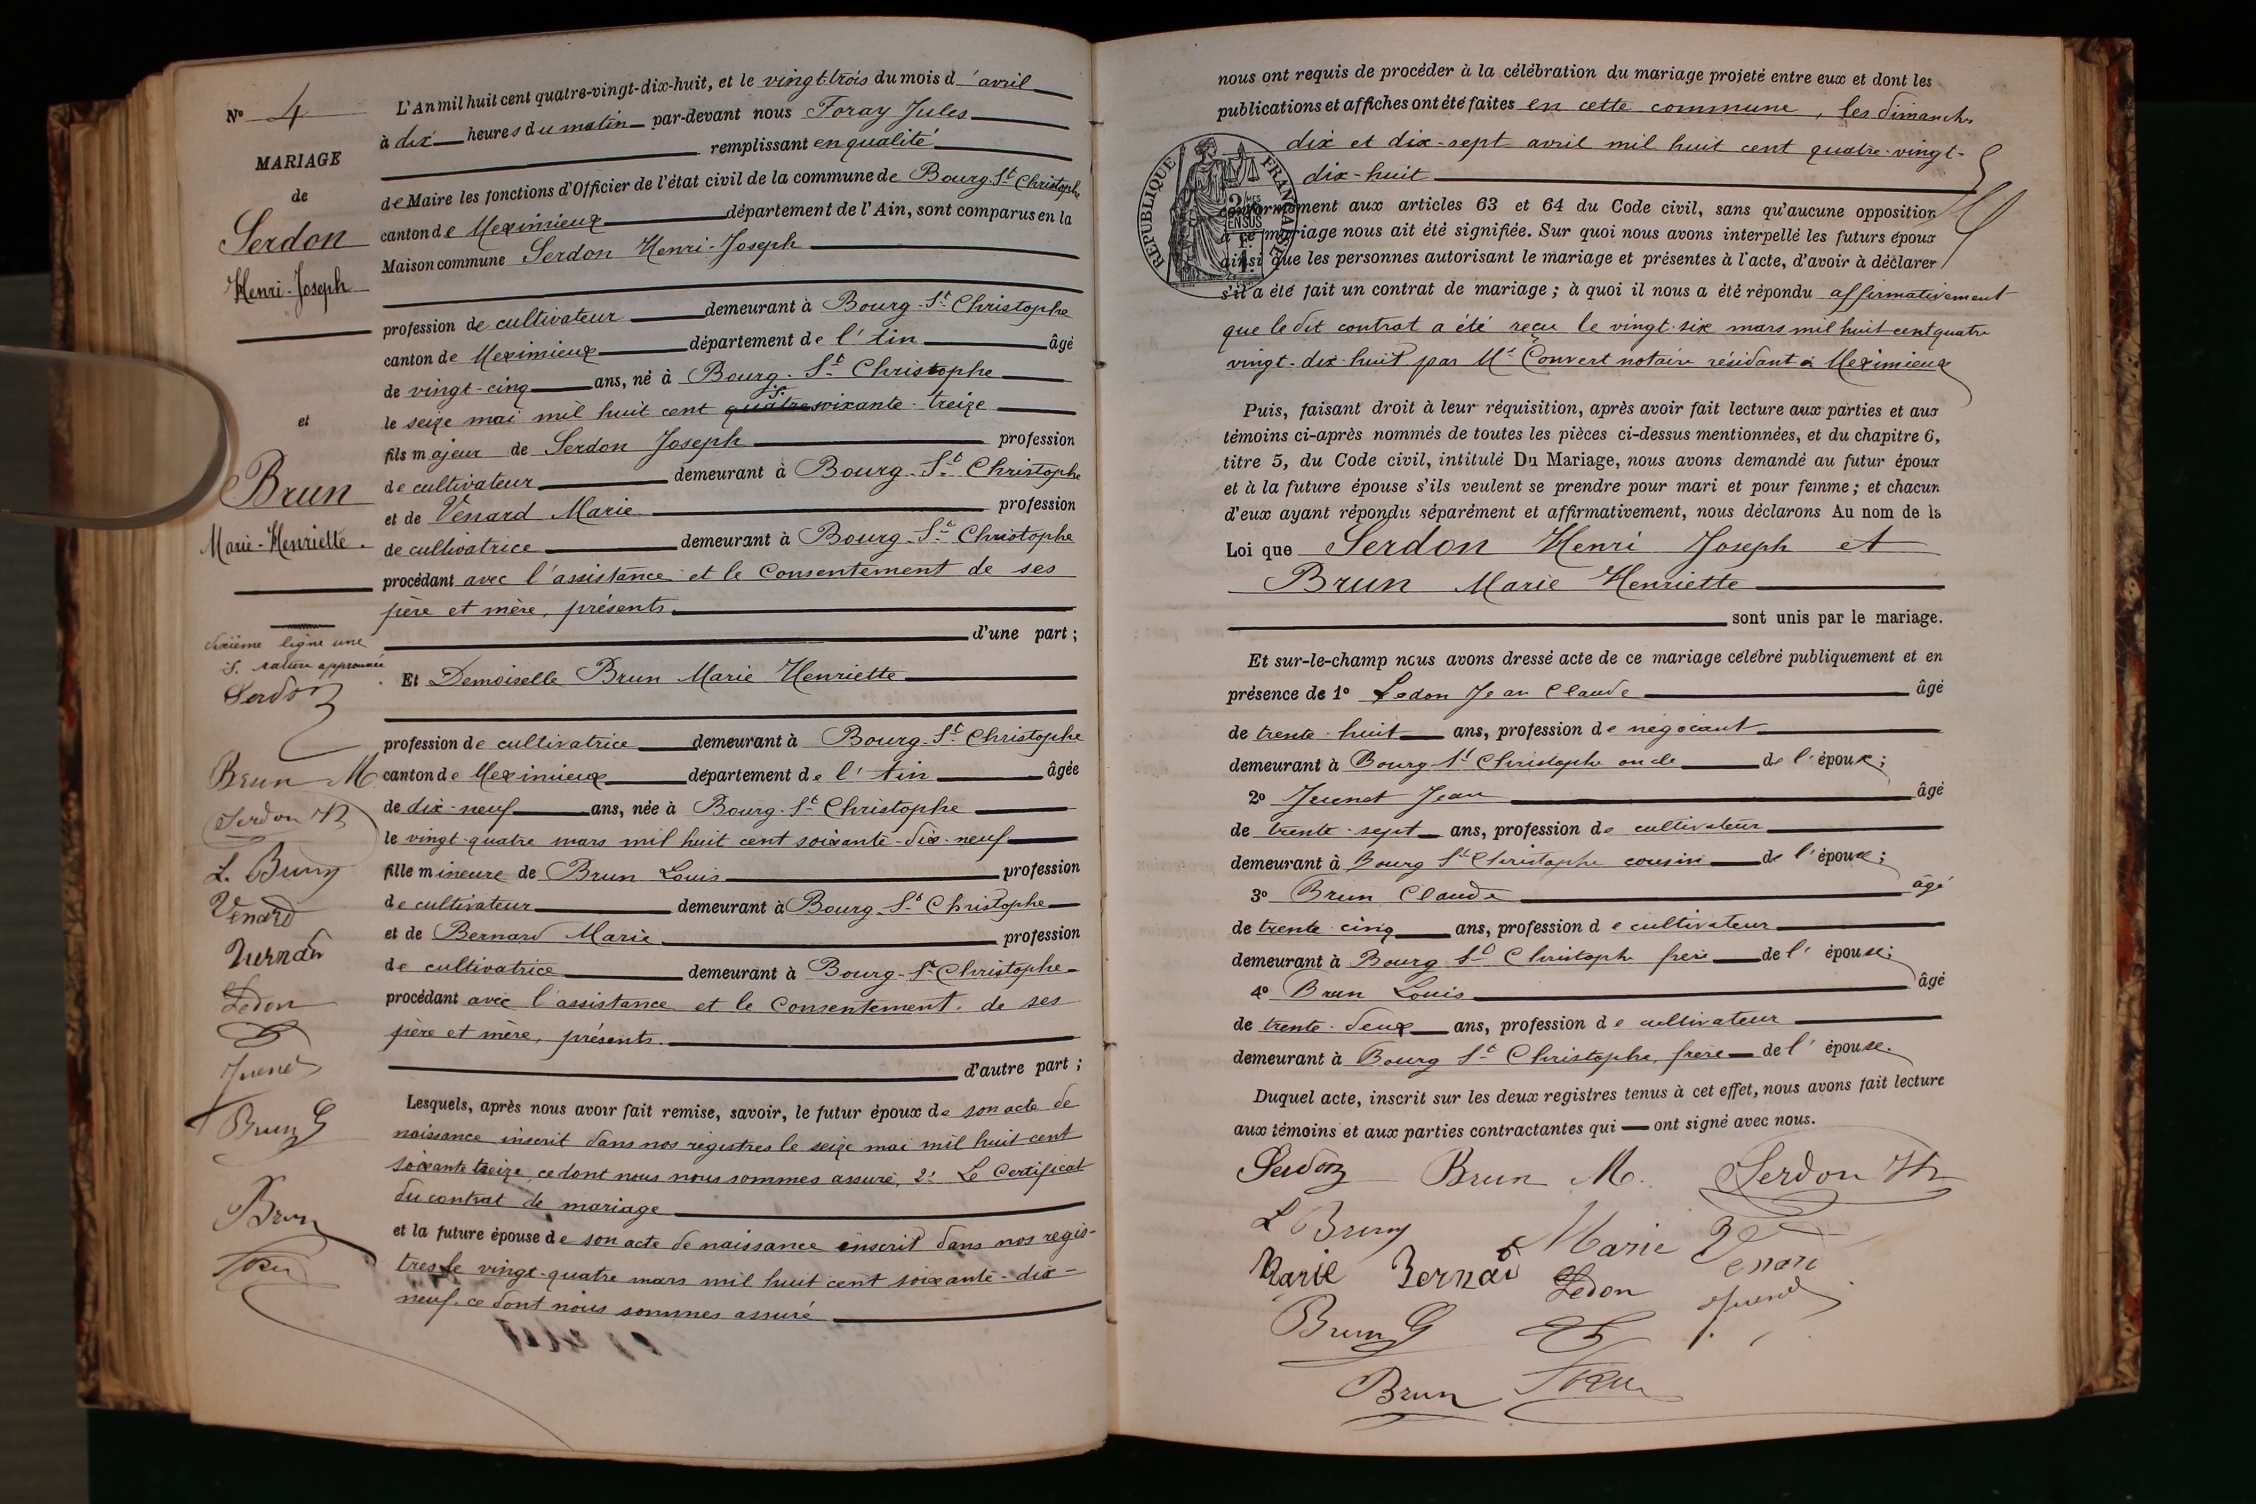 N° 4
MARIAGE
de
Serdon
Henri-Joseph
et
Brun
Marie-Henriette.
dixième ligne une
S. rature approuvée
Serdon
Brun M
Serdon H
L. Brun
Venard
Bernard
Ledon
Juenet
Brun G
Brun
L'An mil huit cent quatre-vingt-dix-huit, et le vingt-trois du mois d'avril
à dix heures du matin par-devant nous Foray Jules
remplissant en qualité
de Maire les fonctions d'Officier de l'état civil de la commune de Bourg-St Christophe
canton de Meximieux département de l'Ain, sont comparus en la
Maison commune Serdon Henri-Joseph
profession de cultivateur demeurant à Bourg-St Christophe
canton de Meximieux département de l'Ain âgé
de vingt-cinq ans, né à Bourg-St Christophe
le seize mai mil huit cent quatre soixante-treize
fils majeur de Serdon Joseph profession
de cultivateur demeurant à Bourg-St Christophe
et de Vénard Marie profession
de cultivatrice demeurant à Bourg-St Christophe
procédant avec l'assistance et le Consentement de ses
père et mère, présents
d'une part;
Et Demoiselle Brun Marie Henriette
profession de cultivatrice demeurant à Bourg-St Christophe
canton de Meximieux département de l'Ain âgée
de dix-neuf ans, née à Bourg-St Christophe
le vingt-quatre mars mil huit cent soixante-dix-neuf
fille mineure de Brun Louis profession
de cultivateur demeurant à Bourg-St Christophe
et de Bernard Marie profession
de cultivatrice demeurant à Bourg-St Christophe
procédant avec l'assistance et le Consentement. de ses
père et mère, présents.
d'autre part;
Lesquels, après nous avoir fait remise, savoir, le futur époux de son acte de
naissance inscrit dans nos registres le seize mai mil huit cent
soixante treize, ce dont nous nous sommes assuré, 2° Le Certificat
du contrat de mariage
et la future épouse de son acte de naissance inscrit dans nos regis-
tres le vingt-quatre mars mil huit cent soixante-dix-
neuf. ce dont nous sommes assuré
nous ont requis de procéder à la célébration du mariage projeté entre eux et dont les
publications et affiches ont été faites en cette commune, les dimanches
dix et dix-sept avril mil huit cent quatre-vingt-
dix-huit
RÉPUBLIQUE FRANÇAISE
conformément aux articles 63 et 64 du Code civil, sans qu'aucune opposition
à ce mariage nous ait été signifiée. Sur quoi nous avons interpellé les futurs époux
ainsi que les personnes autorisant le mariage et présentes à l'acte, d'avoir à déclarer
s'il a été fait un contrat de mariage; à quoi il nous a été répondu affirmativement
que le dit contrat a été reçu le vingt-six mars mil huit cent quatre
vingt-dix-huit par Me Convert notaire résidant à Meximieux
Puis, faisant droit à leur réquisition, après avoir fait lecture aux parties et aux
témoins ci-après nommés de toutes les pièces ci-dessus mentionnées, et du chapitre 6,
titre 5, du Code civil, intitulé Du Mariage, nous avons demandé au futur époux
et à la future épouse s'ils veulent se prendre pour mari et pour femme; et chacun
d'eux ayant répondu séparément et affirmativement, nous déclarons Au nom de la
Loi que Serdon Henri Joseph et
Brun Marie Henriette
sont unis par le mariage.
Et sur-le-champ nous avons dressé acte de ce mariage célébré publiquement et en
présence de 1° Ledon Jean Claude âgé
de trente-huit ans, profession de négociant
demeurant à Bourg St Christophe oncle de l'époux;
2° Juenet Jean âgé
de trente-sept ans, profession de cultivateur
demeurant à Bourg St Christophe cousin de l'époux;
3° Brun Claude âgé
de trente-cinq ans, profession de cultivateur
demeurant à Bourg St Christophe frère de l'épouse;
4° Brun Louis âgé
de trente-deux ans, profession de cultivateur
demeurant à Bourg St Christophe, frère de l'épouse.
Duquel acte, inscrit sur les deux registres tenus à cet effet, nous avons fait lecture
aux témoins et aux parties contractantes qui ont signé avec nous.
Serdon Brun M. Serdon H
L Brun Marie Venard
Marie Bernard Ledon Juenet
Brun G
Brun